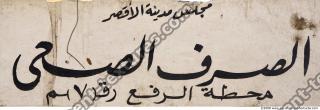 مجلس مدينة الأقصر
الصرف الصحى
محطة الرفع رقم